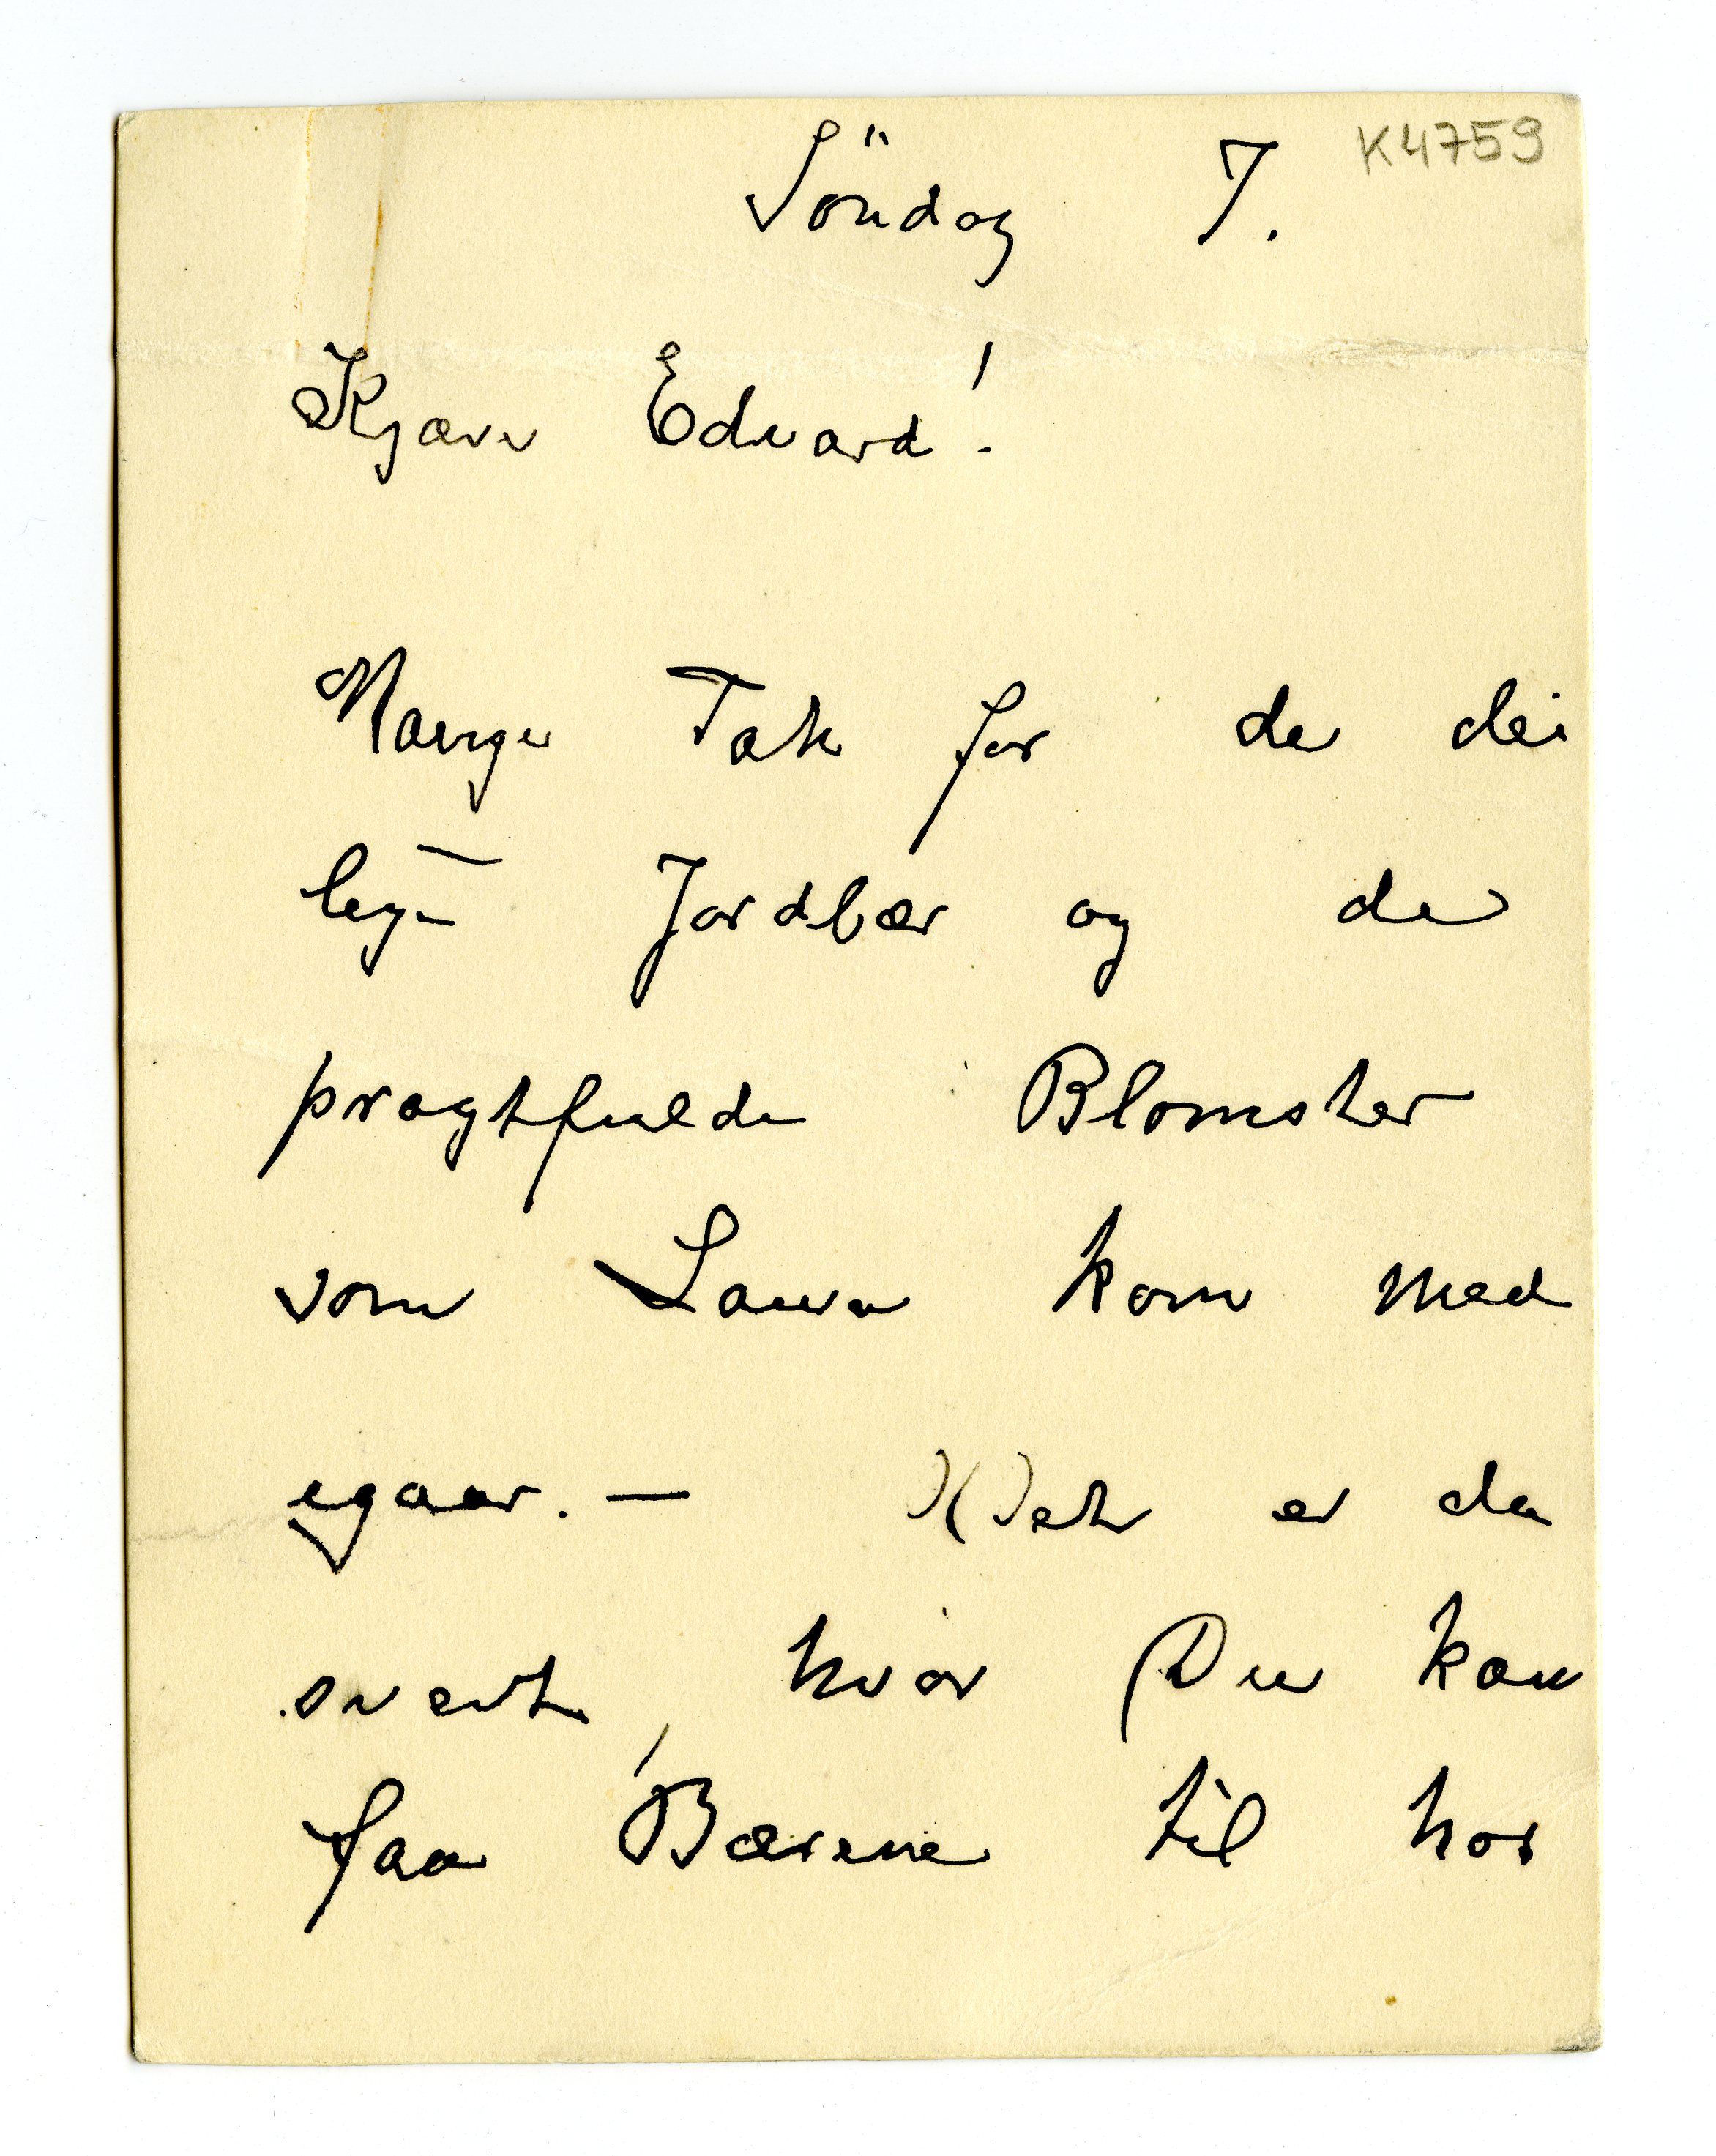 K4759
Söndag 7.
Kjære Edvard!
Mange Tak for de dei
lige Jordbær og de
pragtfulde Blomster
som Laura kom med
igaar. — Det er da
svært, hvor Du kan
faa Bærene til